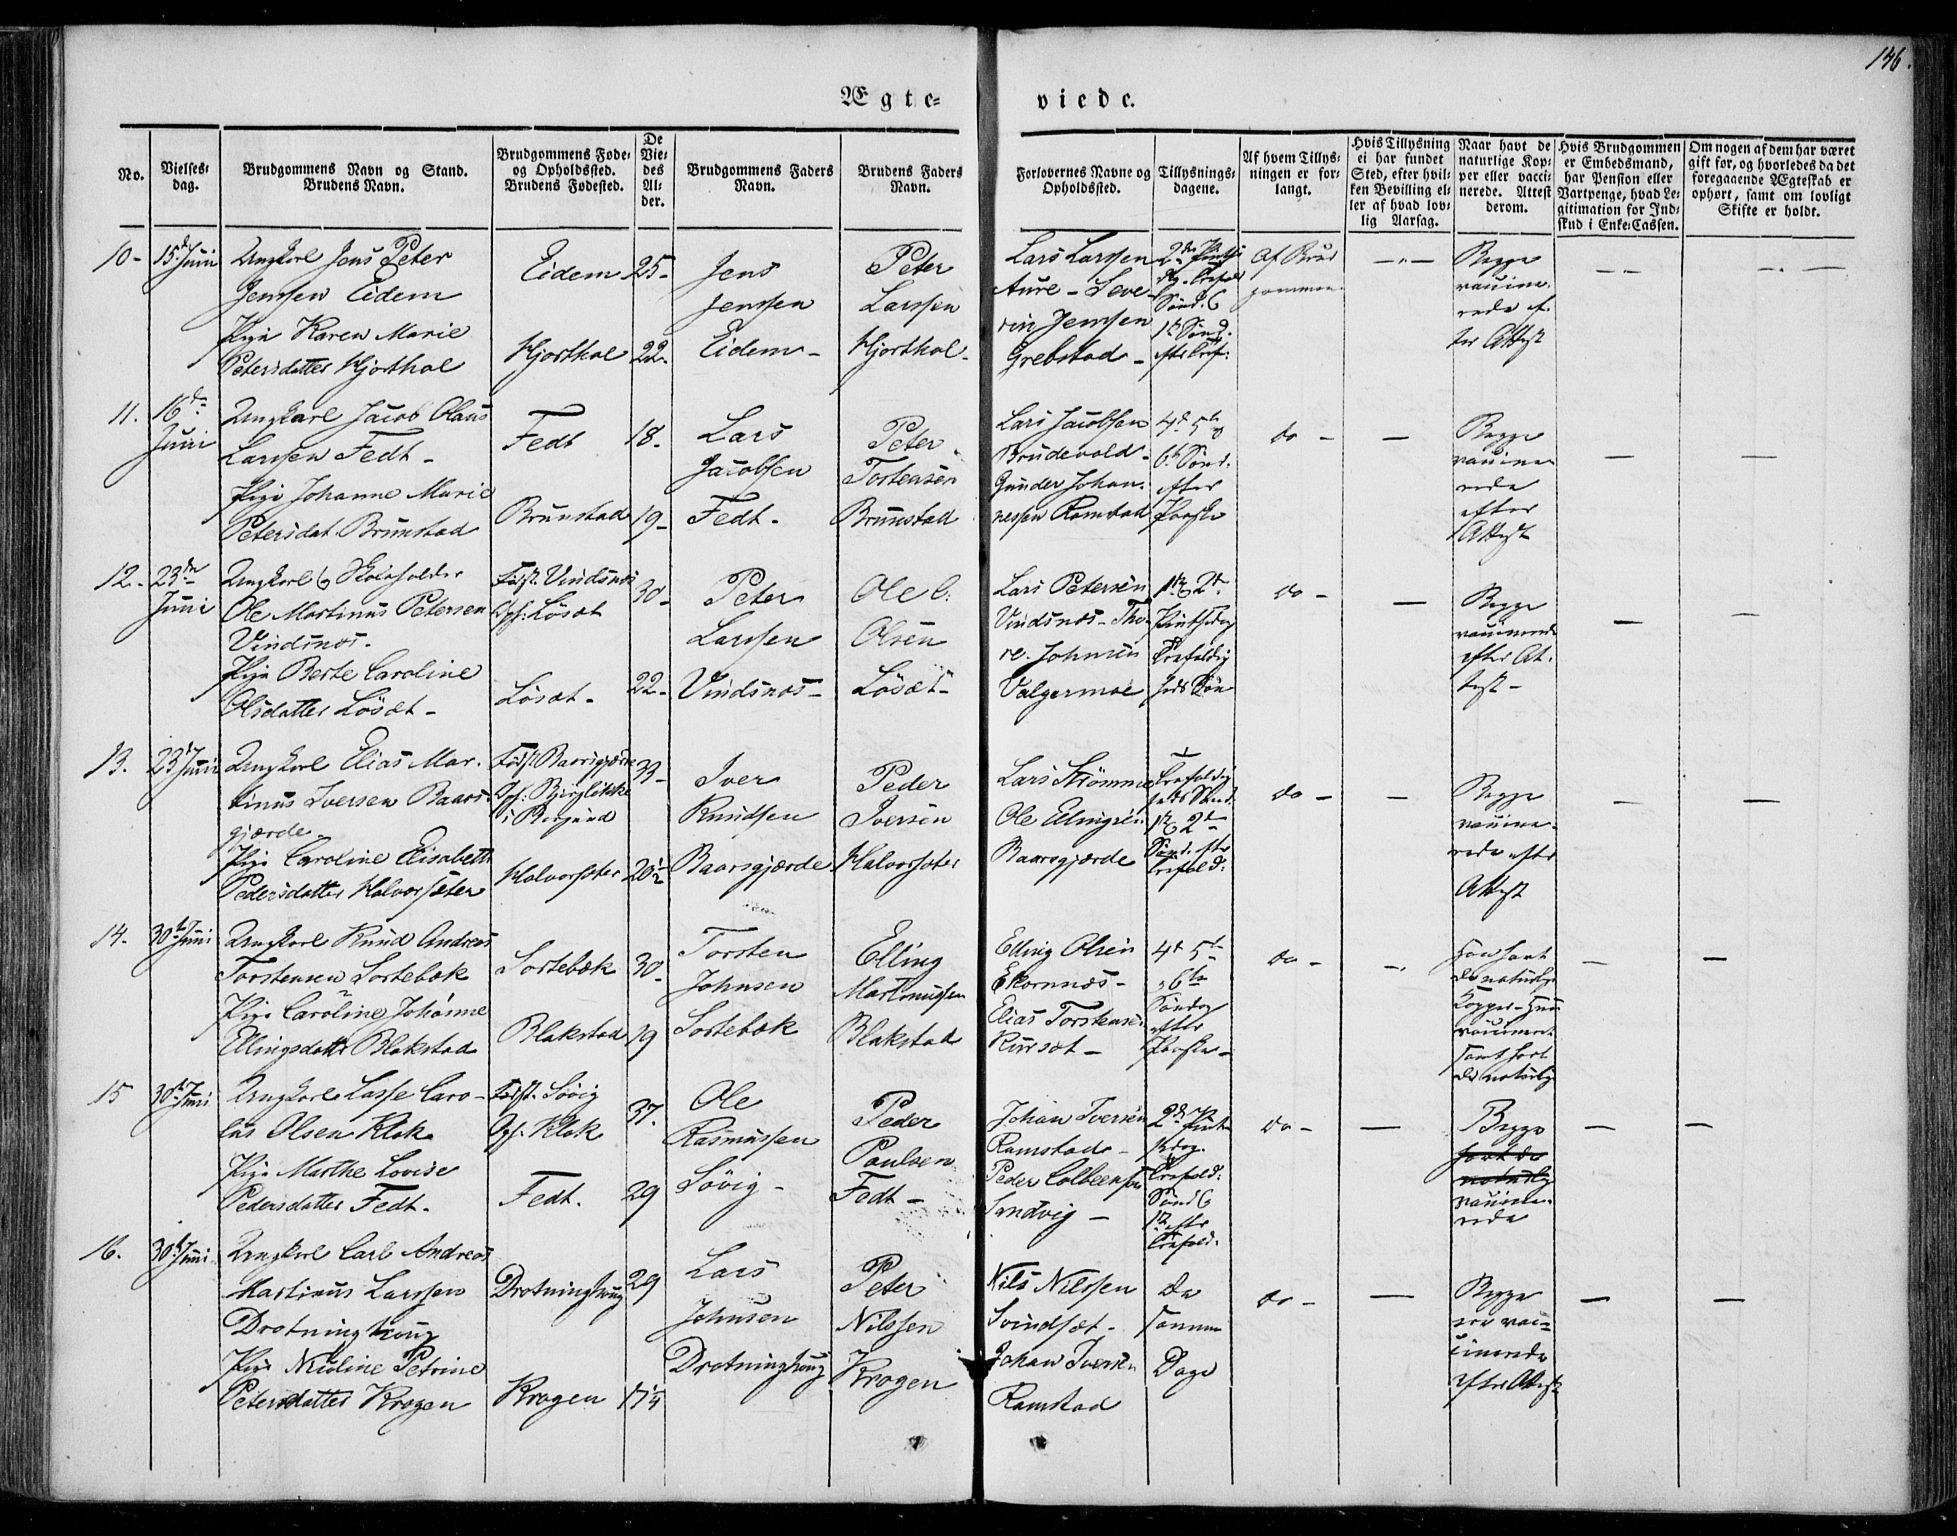 146.
Ægte-
viede.
No.
Vielses-
dag.
Brudgommens Navn og Stand.
Brudens Navn.
Brudgommens Føde-
og Opholdssted.
Brudens Fødested.
De
Vie-
des
Al-
der.
Brudgommens Faders
Navn.
Brudens Faders
Navn.
Forlovernes Navne og
Opholdssted.
Tillysnings-
dagene.
Af hvem Tillys-
ningen er for-
langt.
Hvis Tillysning
ei har fundet
Sted, efter hvil-
ken Bevilling el-
ler af hvad lov-
lig Aarsag.
Naar havt de
naturlige Kop-
per eller vacci-
nerede. Attest
derom.
Hvis Brudgommen
er Embedsmand,
har Pension eller
Vartpenge, hvad Le-
gitimation for Ind-
skud i Enke-Cassen.
Om nogen af dem har været
gift før, og hvorledes da det
foregaaende Ægteskab er
ophørt, samt om lovligt
Skifte er holdt.
10-
15d Juni
Ungkarl Jens Peter
Jenssen Eidem
Pige Karen Marie
Petersdatter Hjorthol
Eidem
Hjorthol
25-
22-
Jens
Jenssen
Eidem-
Peter
Larssen
Hjorthol-
Lars Larssen
Aure - Seve-
rin Jenssen
Grebstad-
Af Brud
gommen
Begge
vaccine-
rede ef-
ter Attest
11.
16de
Juni
Ungkarl Jacob Olaus
Larssen Fedt-
Pige Johanne Marie
Petersdat. Brunstad
Fedt
Brunstad
18-
19-
Lars
Jacobsen
Fedt-
Peter
Torstensen
Brunstad
Lars Jacobsen
Brudevold-
Gunder Johan-
nessen Ramstad
4d 5te
6te Sønd.
efter
Paaske
do -
Begge
vaccine
rede
efter
Attest
12-
23de
Juni
Ungkarl og Skoleholder
Ole Martinus Petersen
Vindsnæs-
Pige Berte Caroline
Olsdatter Løsæt-
Født. Vindsnæs
Oph: Løsæt
Løsæt-
30-
22-
Peter
Larssen
Vindsnæs-
Ole C.
Olsen
Løsæt-
Lars Petersen
Vindsnæs - Tho-
re Johnsen
Valgermoe
1ste & 2d
Pintsedag
Trefoldig
heds Søn
do -
Begge
vaccinerede
efter At-
test-
13.
23d Juni
Ungkarl Elias Mar-
tinus Iversen Baars-
gjærde-
Pige Caroline Elisabeth
Pedersdatter Halvorsæter
Født Baarsgjærde
i Borgund
Halvorsæter
33-
20½
Iver
Knudsen
Baarsgjærde
Peder
Iversen
Halvorsæter
Lars Strømme
Ole Ellingsen
Baarsgjærde
Trefoldig
heds Sønd.
1ste & 2de
Sønd. efter
Trefold:
do -
Begge
vaccine-
rede efter
Attest
14-
30te Juni
Ungkarl Knud Andreas
Torstensen Sortebæk
Pige Caroline Johanne
Ellingsdatter Blakstad
Sortebæk
Blakstad
30-
19
Torsten
Johnsen
Sortebæk
Elling
Martinussen
Blakstad
Elling Olsen
Ekornnæs-
Elias Torstensen
Rursæt-
4d 5te
6te
Søndag
efter
Paaske-
do -
Han havt
de naturlige
Kopper - Hun
vaccineret
samt havt
de naturlig
15
30te Juni
Ungkarl Lasse Caro-
lus Olsen Klok
Pige Marthe Lovise
Pedersdatter Fedt.
Født. Søvig
Oph: Klok
Fedt.
37.
29
Ole
Rasmussen
Søvig-
Peder
Paulsen
Fedt-
Johan Iversen
Ramstad-
Peder Colbeensen
Sandvig-
do -
Begge
havt de
naturlig
vaccine-
rede
16.
30te Juni
Ungkarl Carl Andreas
Martinus Larssen
Drotninghoug
Pige Nicoline Petrine
Petersdatter Krogen
Drotninghoug
Krogen
29
17¼
Lars
Johnsen
Drotninghoug
Peter
Nilssen
Krogen
Nils Nilssen
Svindsæt-
Johan Iversen
Ramstad
De
samme
Dage
do -
Begge
ere vac-
cinerede
efter Attest